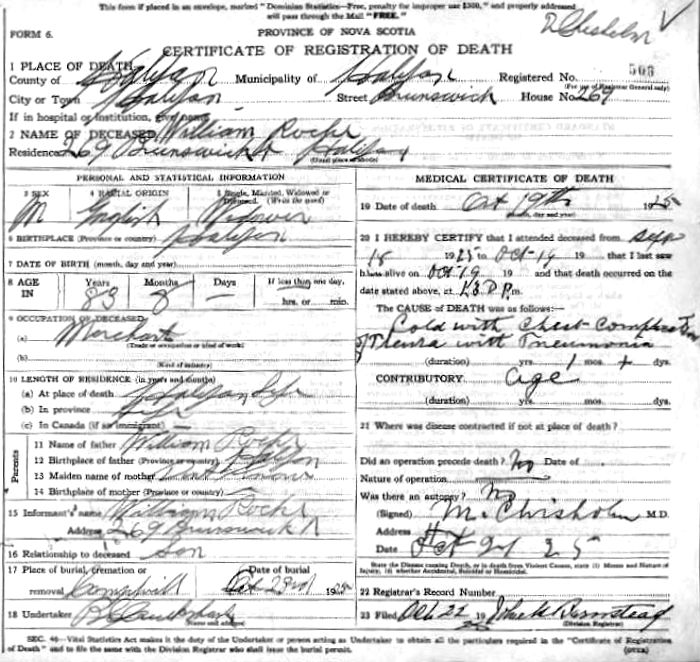 This form if placed in an envelope, marked "Dominion Statistics—Free, penalty for improper use $300," and properly addressed
will pass through the Mail "FREE."
FORM 6.
PROVINCE OF NOVA SCOTIA
D Chisholm
CERTIFICATE OF REGISTRATION OF DEATH
1 PLACE OF DEATH
County of Halifax Municipality of Halifax Registered No. 503
(For use of Registrar General only)
City or Town Halifax Street Brunswick House No. 269
If in hospital or institution, give name
2 NAME OF DECEASED William Roche
Residence 269 Brunswick St Halifax
(Usual place of abode)
PERSONAL AND STATISTICAL INFORMATION
3 SEX 4 RACIAL ORIGIN 5 Single, Married, Widowed or Divorced. (Write the word)
M English Widower
6 BIRTHPLACE (Province or country) Halifax
7 DATE OF BIRTH (month, day and year)
8 AGE IN Years Months Days If less than one day,
83 8 — hrs. or min.
9 OCCUPATION OF DECEASED
(a) Merchant
(Trade or occupation or kind of work)
(b)
(Kind of industry)
10 LENGTH OF RESIDENCE (in years and months)
(a) At place of death Halifax Life
(b) In province Life
(c) In Canada (if an immigrant) —
Parents
11 Name of father William Roche
12 Birthplace of father (Province or country) Halifax
13 Maiden name of mother
14 Birthplace of mother (Province or country)
15 Informant's name William Roche
Address 269 Brunswick St
16 Relationship to deceased Son
17 Place of burial, cremation or removal Date of burial
Camphill Oct 22nd 1925
18 Undertaker
(Name and address)
MEDICAL CERTIFICATE OF DEATH
19 Date of death Oct 19th 1925
(Month, day and year)
20 I HEREBY CERTIFY that I attended deceased from Sept
18 1925 to Oct-19 19 that I last saw
h alive on Oct 19 19 and that death occurred on the
date stated above, at P.m.
The CAUSE of DEATH was as follows:
Cold with Chest-Complication
of Pleura with Pneumonia
(duration) yrs. 1 mos. + dys.
CONTRIBUTORY age
(duration) yrs. mos. dys.
21 Where was disease contracted if not at place of death?
Did an operation precede death? No Date of
Nature of operation
Was there an autopsy? No
(Signed) M. Chisholm M.D.
Address
Date Oct 21 25
State the Disease causing Death, or in death from Violent Causes, state (1) Means and Nature of
Injury, (2) whether Accidental, Suicidal or Homicidal.
22 Registrar's Record Number
23 Filed Oct 22 19
(Division Registrar)
SEC. 46—Vital Statistics Act makes it the duty of the Undertaker or person acting as Undertaker to obtain all the particulars required in the "Certificate of Registration
of Death" and to file the same with the Division Registrar who shall issue the burial permit. (OVER)